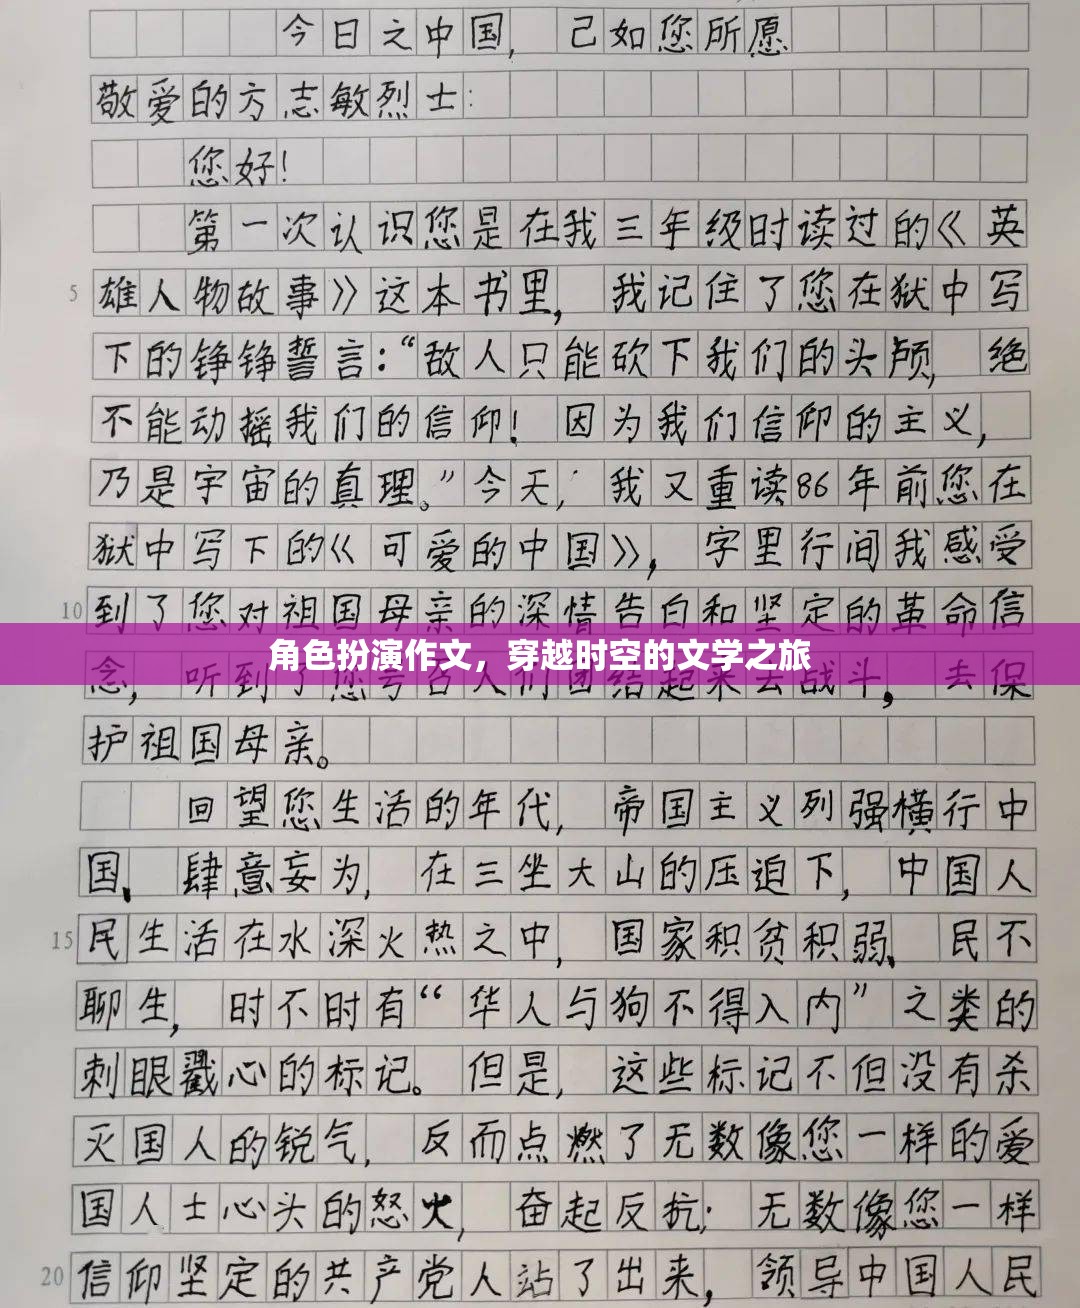 今日之中国，己如您所愿
敬爱的方志敏烈士：
您好！
第一次认识您是在我三年级时读过的《英
5 雄人物故事》这本书里，我记住了您在狱中写
下的铮铮誓言：“敌人只能砍下我们的头颅，绝
不能动摇我们的信仰！因为我们信仰的主义，
乃是宇宙的真理。”今天，我又重读86年前您在
狱中写下的《可爱的中国》，字里行间我感受
10 到了您对祖国母亲的深情告白和坚定的革命信
角色扮演作文，穿越时空的文学之旅
念，听到了您号召人们团结起来去战斗，去保
护祖国母亲。
回望您生活的年代，帝国主义列强横行中
国、肆意妄为，在三坐大山的压迫下，中国人
15 民生活在水深火热之中，国家积贫积弱、民不
聊生，时不时有“华人与狗不得入内”之类的
刺眼戳心的标记。但是，这些标记不但没有杀
灭国人的锐气，反而点燃了无数像您一样的爱
国人士心头的怒火，奋起反抗；无数像您一样
20 信仰坚定的共产党人站了出来，领导中国人民